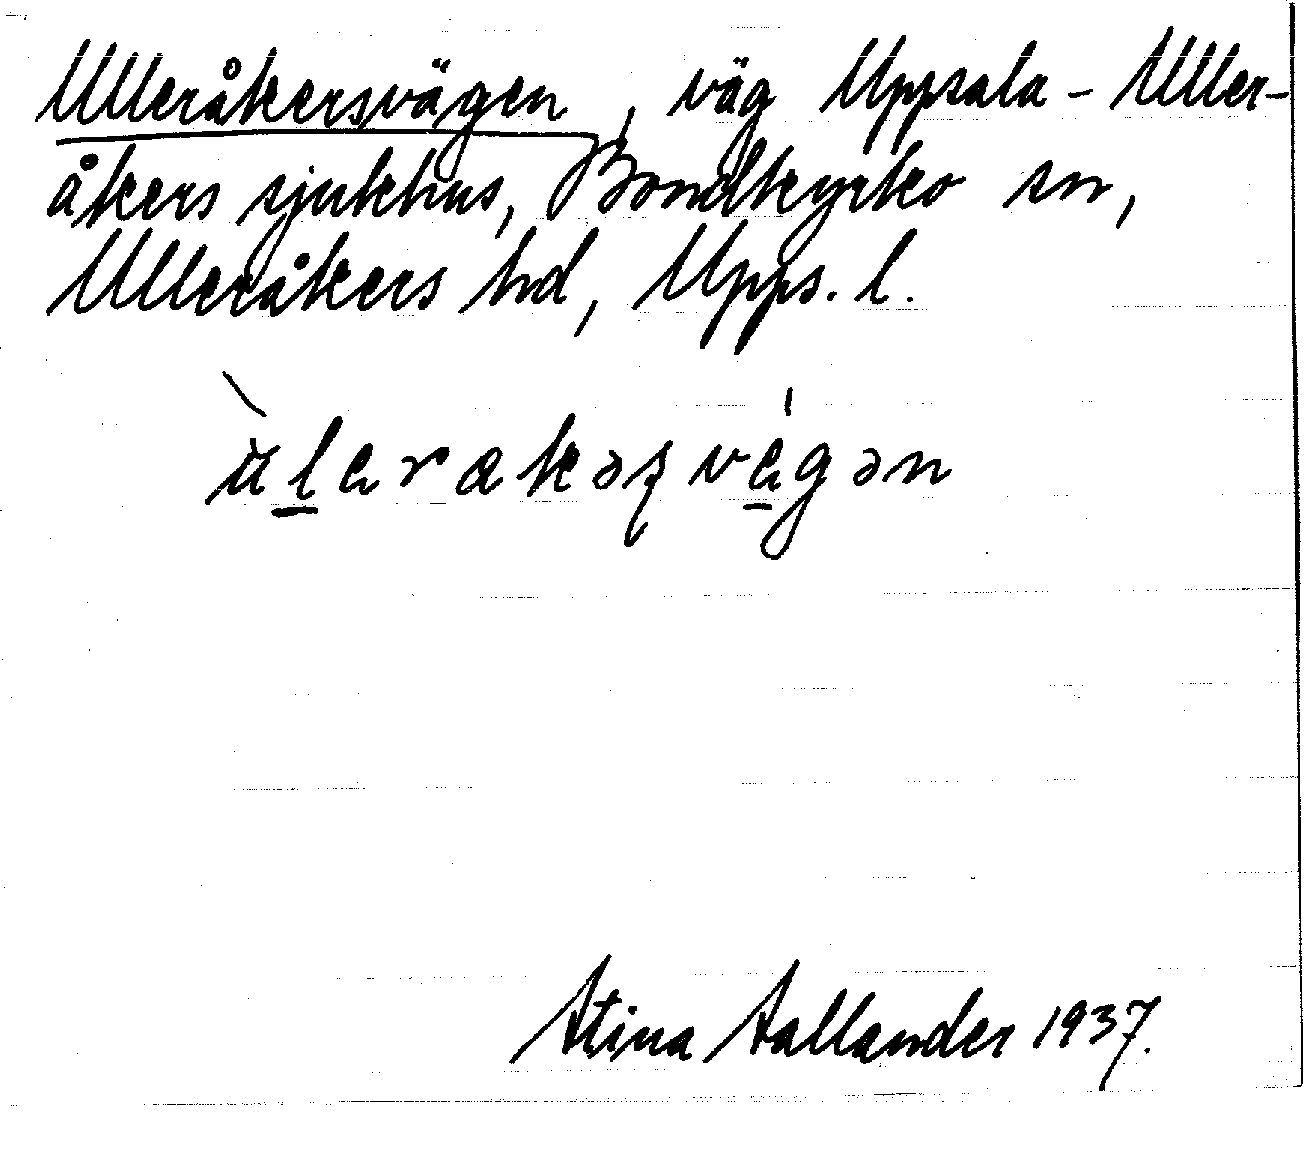 Ulleråkersvägen, väg Uppsala - Uller-
åkers sjukhus, Bondkyrko sn,
Ulleråkers hd, Upps. l.
ùleråkəʂvégən
Stina Sallander 1937.